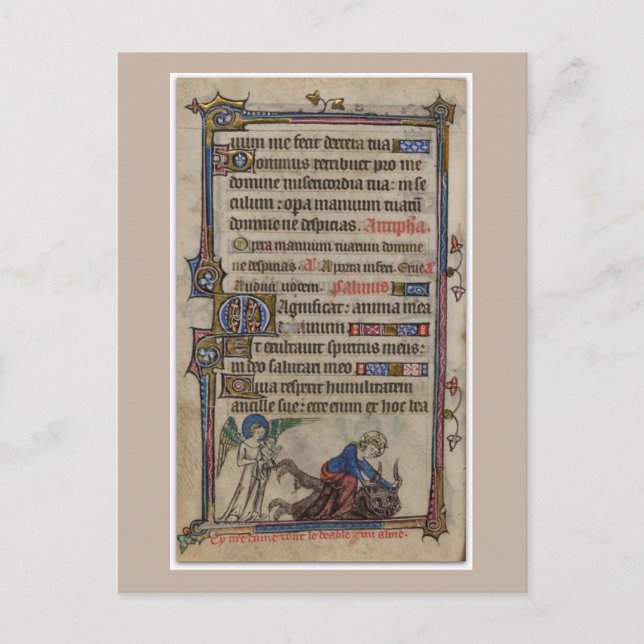 uum me fecit dextera tua
Dominus retribuet pro me
domine misericordia tua : in se
culum : opera manuum tuarum
domine ne despicias. Antiphona.
Opera manuum tuarum domine
ne despicias. A porta inferi. Erue
Audiui uocem. Psalmus
Magnificat : anima mea
dominum
Et exultauit spiritus meus :
in deo salutari meo
Quia respexit humilitatem
ancille sue : ecce enim ex hoc bea
Cy nre dame tout le deable un alme.